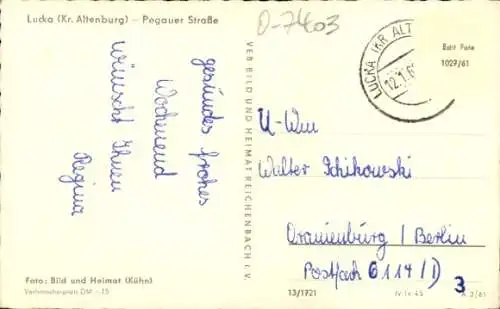 Lucka (Kr. Altenburg) — Pegauer Straße
O-7403
LUCKA (KR ALT
12.1.6
Echt Foto
1029/61
gesundes frohes
Wochenend
wünscht Ihnen
Regina
VEB BILD UND HEIMAT REICHENBACH I. V.
U-Wm
Walter Schikowski
Oranienburg / Berlin
Postfach 6114/D
3
Foto: Bild und Heimat (Kühn)
Verbraucherpreis DM —,25
13/1721
IV-14-45
A 2/61